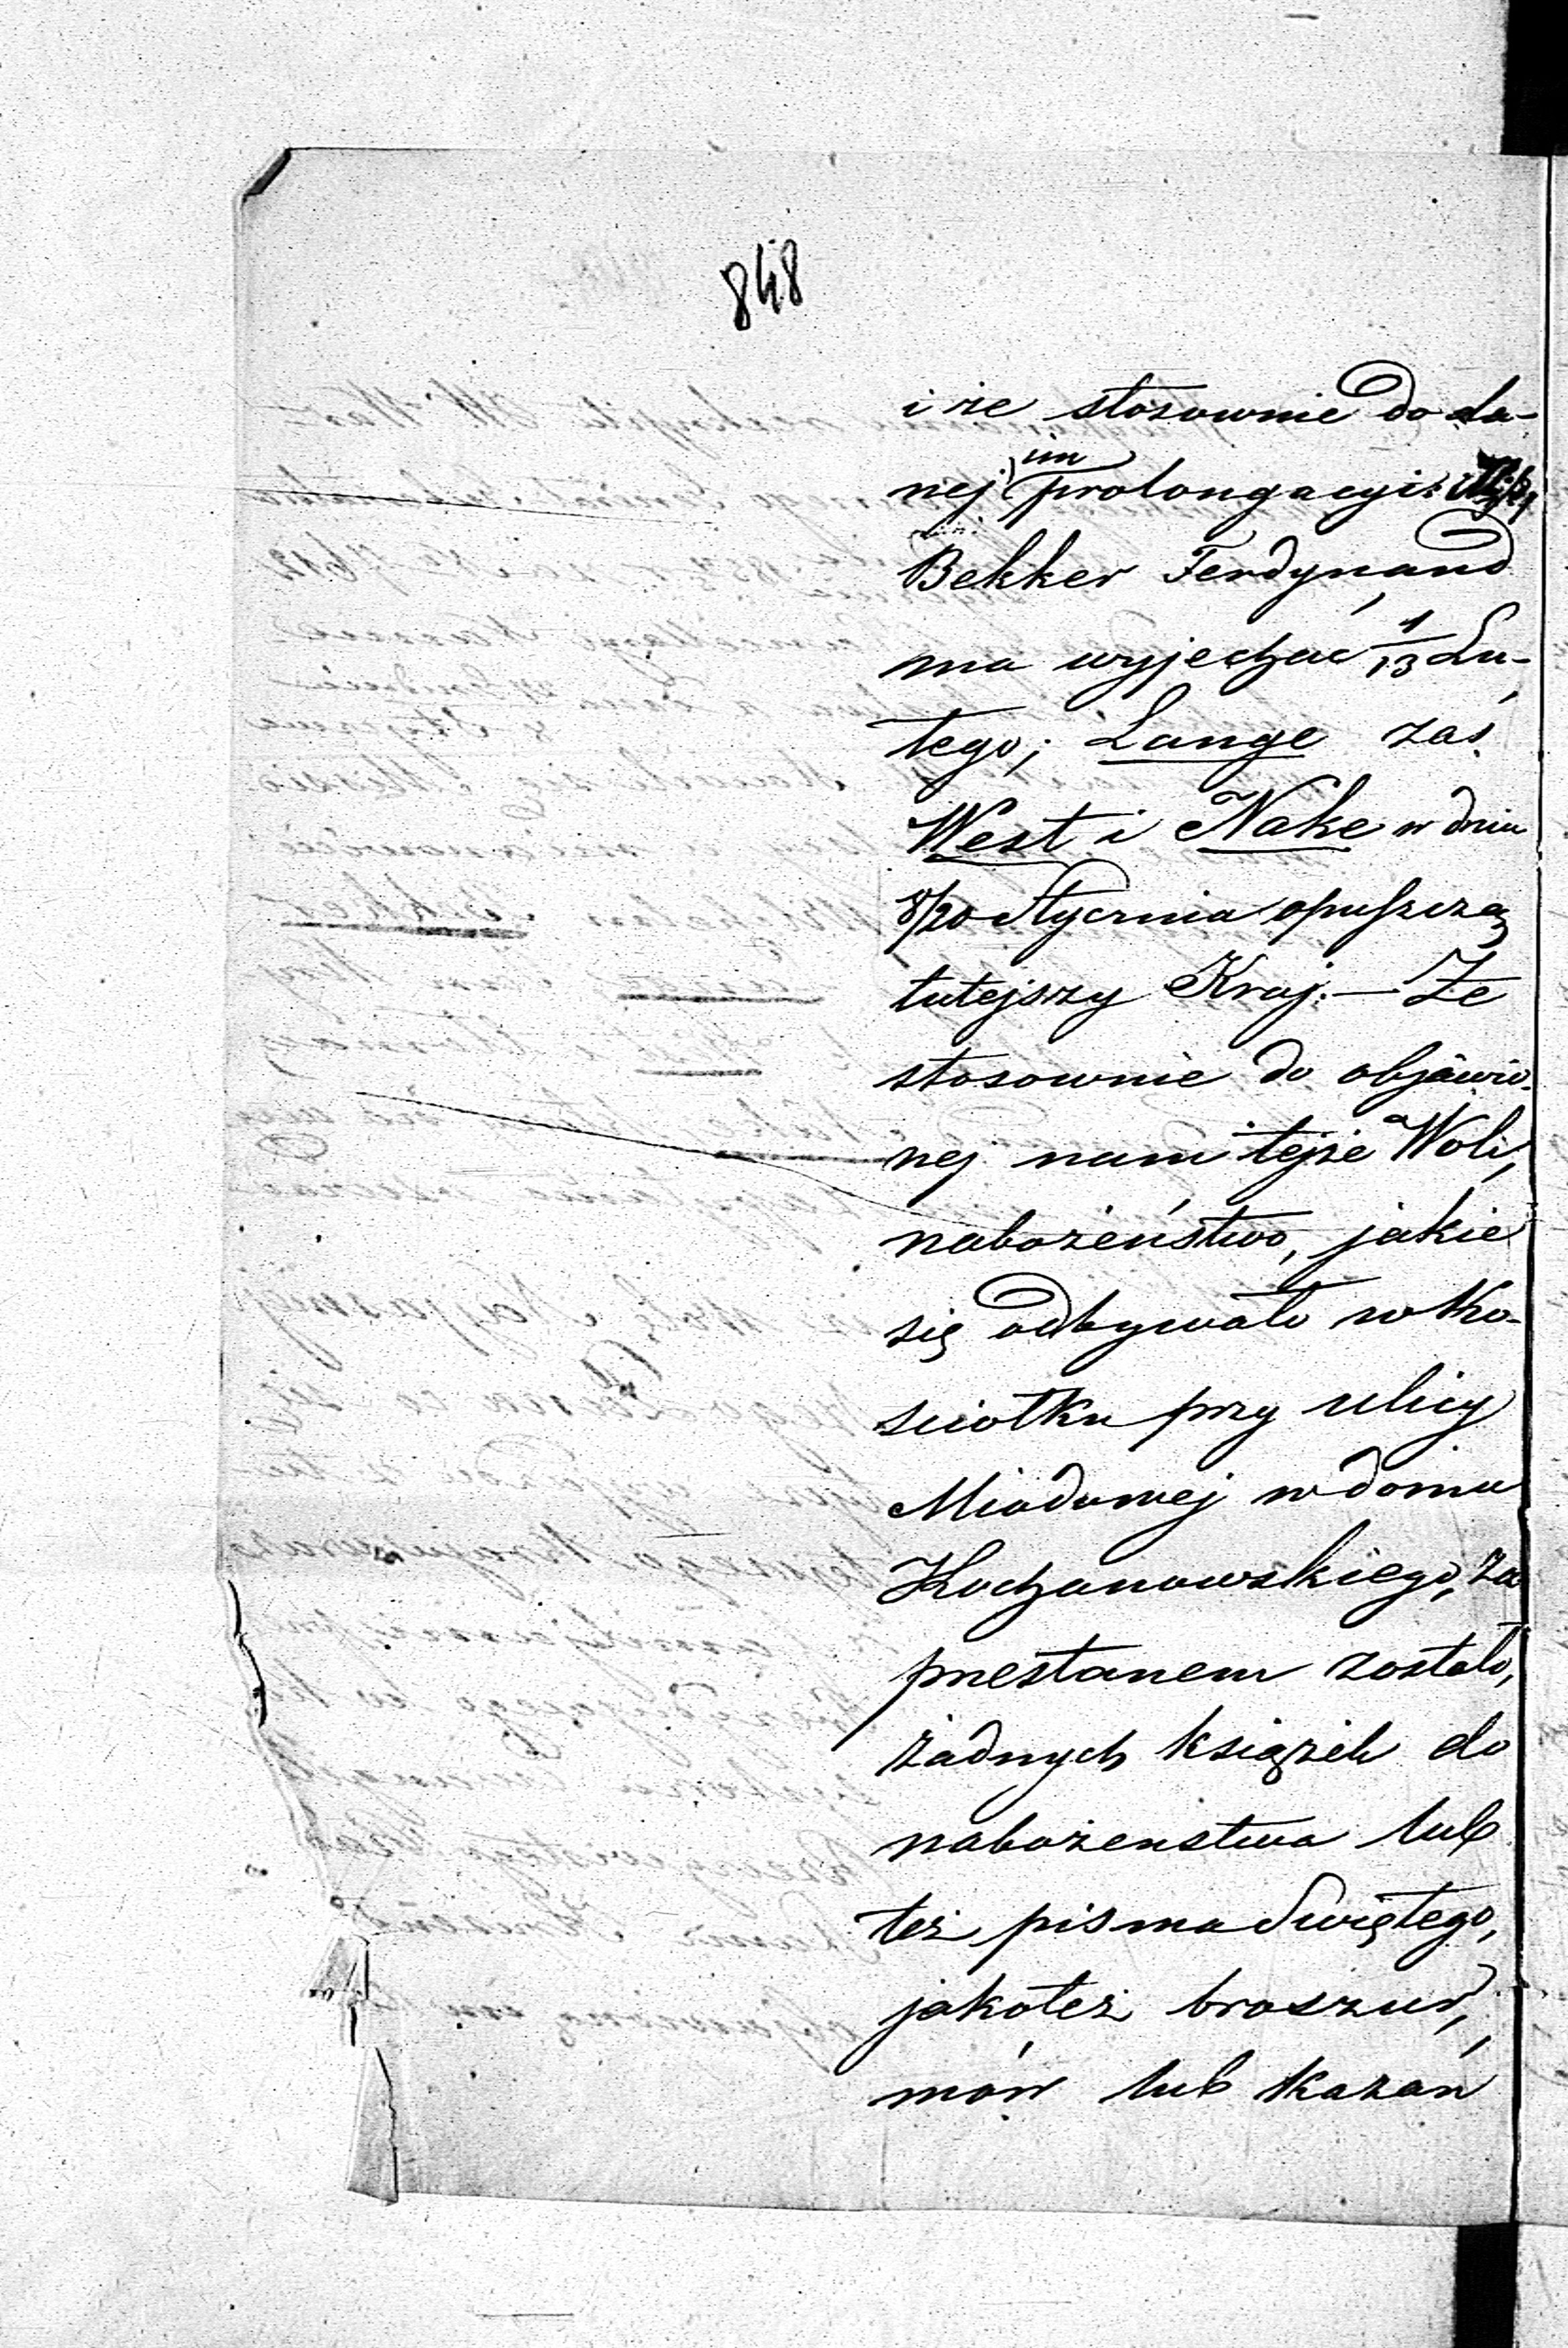 848
i że stosownie do da-
nej im prolongacyi:
Bekker Ferdynand
ma wyjechać 1/13 Lu-
tego; Lange zaś
West i Nake w dniu
8/20 Stycznia opuszczą
tutejszy Kraj. — Że
stosownie do objawio-
nej nam tejże Woli,
nabożeństwo, jakie
się odbywało w Ko-
sciołku przy ulicy
Miodowej w domu
Kochanowskiego, za
przestanem zostało,
żadnych książek do
nabożenstwa lub
też pisma Swiętego,
jakoteż broszur,
mów lub kazań